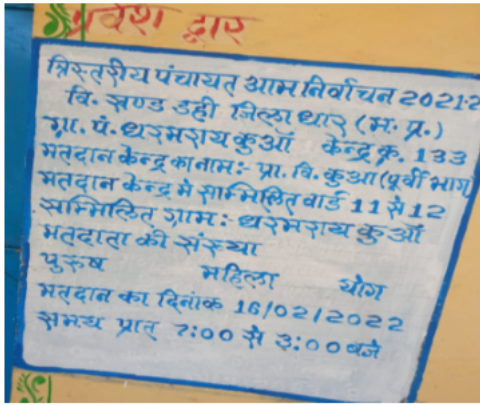 प्रवेश द्वार
त्रिस्तरीय पंचायत आम निर्वाचन 2021-2
वि. खण्ड डही जिला धार (म. प्र.)
ग्रा. पं. धरमराय कुआँ केन्द्र क्र. 133
मतदान केन्द्र का नाम:- प्रा. वि. कुआ (पूर्वी भाग)
मतदान केन्द्र मे साम्मिलित वार्ड 11 से 12
सम्मिलित ग्राम:- धरमराय कुआँ
मतदाता की संख्या
पुरुष महिला योग
मतदान का दिनांक 16/02/2022
समय प्रात 7:00 से 3:00 बजे